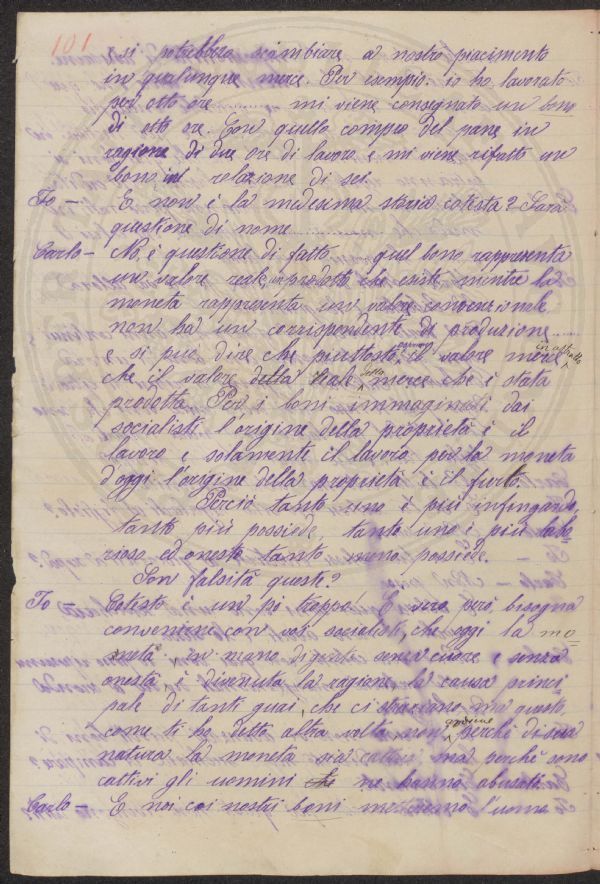 101
si potrebbero scambiare a nostro piacimento
in qualunque merce. Per esempio: io ho lavorato
per otto ore ........... mi viene consegnato un bono
di otto ore. Con quello compro del pane in
ragione di due ore di lavoro e mi viene rifatto un
bono in relazione di sei.
Io — E non è la medesima storia cotesta? Sarà
questione di nome ............
Carlo — No, è questione di fatto quel bono rappresenta
un valore reale, un prodotto che esiste mentre la
moneta rappresenta un valore convenzionale
non ha un corrispondente di produzione ......
e si può dire che piuttosto il valore merce in astratto
che il valore reale della merce che è stata
prodotta. Per i boni immaginati dai
socialisti l'origine della proprietà è il
lavoro e solamente il lavoro per la moneta
d'oggi l'origine della proprietà è il furto.
Perciò tanto uno è più infingardo,
tanto più possiede, tanto uno è più labo-
rioso ed onesto tanto meno possiede.
Son falsità queste?
Io — Cotesto è un po' troppo! È vero però, bisogna
convenirne con voi socialisti, che oggi la mo-
neta in mano di gente senza cuore e senza
onestà è divenuta la ragione, la causa princi-
pale di tanti guai, che ci straziano, ma questo
come ti ho detto altra volta, non avviene perchè di sua
natura la moneta sia cattiva, ma perchè sono
cattivi gli uomini che ne hanno abusato.
Carlo — E noi coi nostri boni metteremo l'uomo